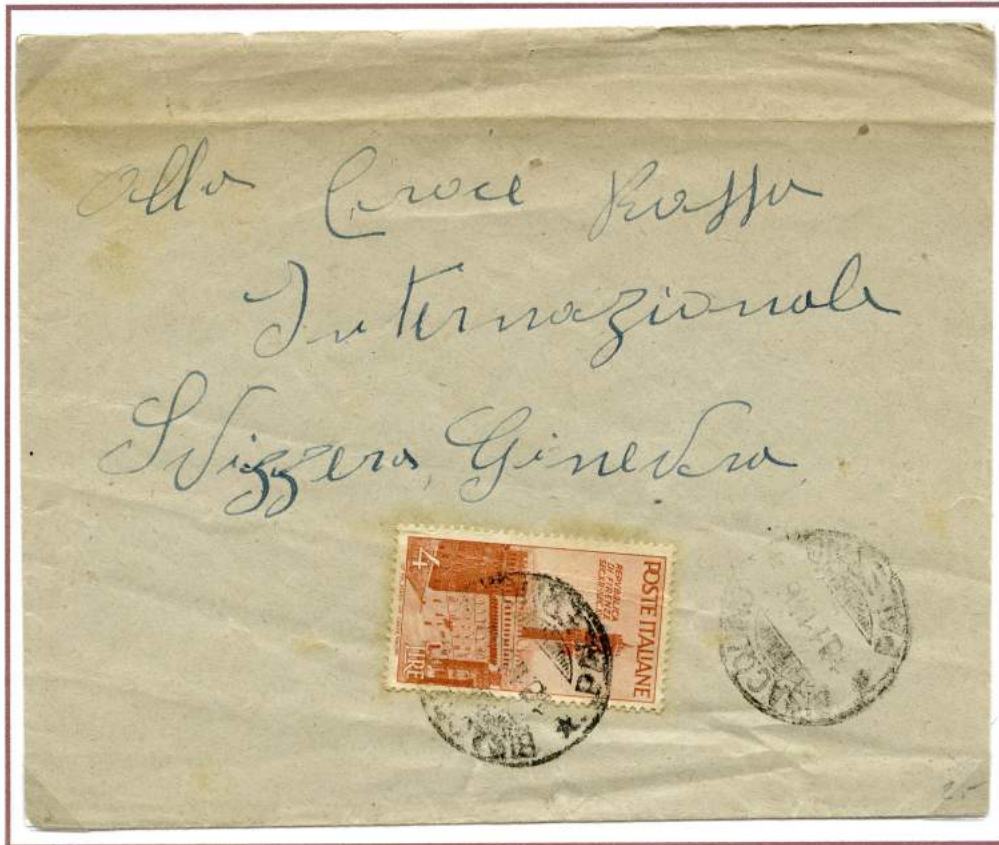 Alla Croce Rossa
Internazionale
Svizzera, Ginevra
POSTE ITALIANE
REPVBBLICA
DI FIRENZE
4
LIRE
25